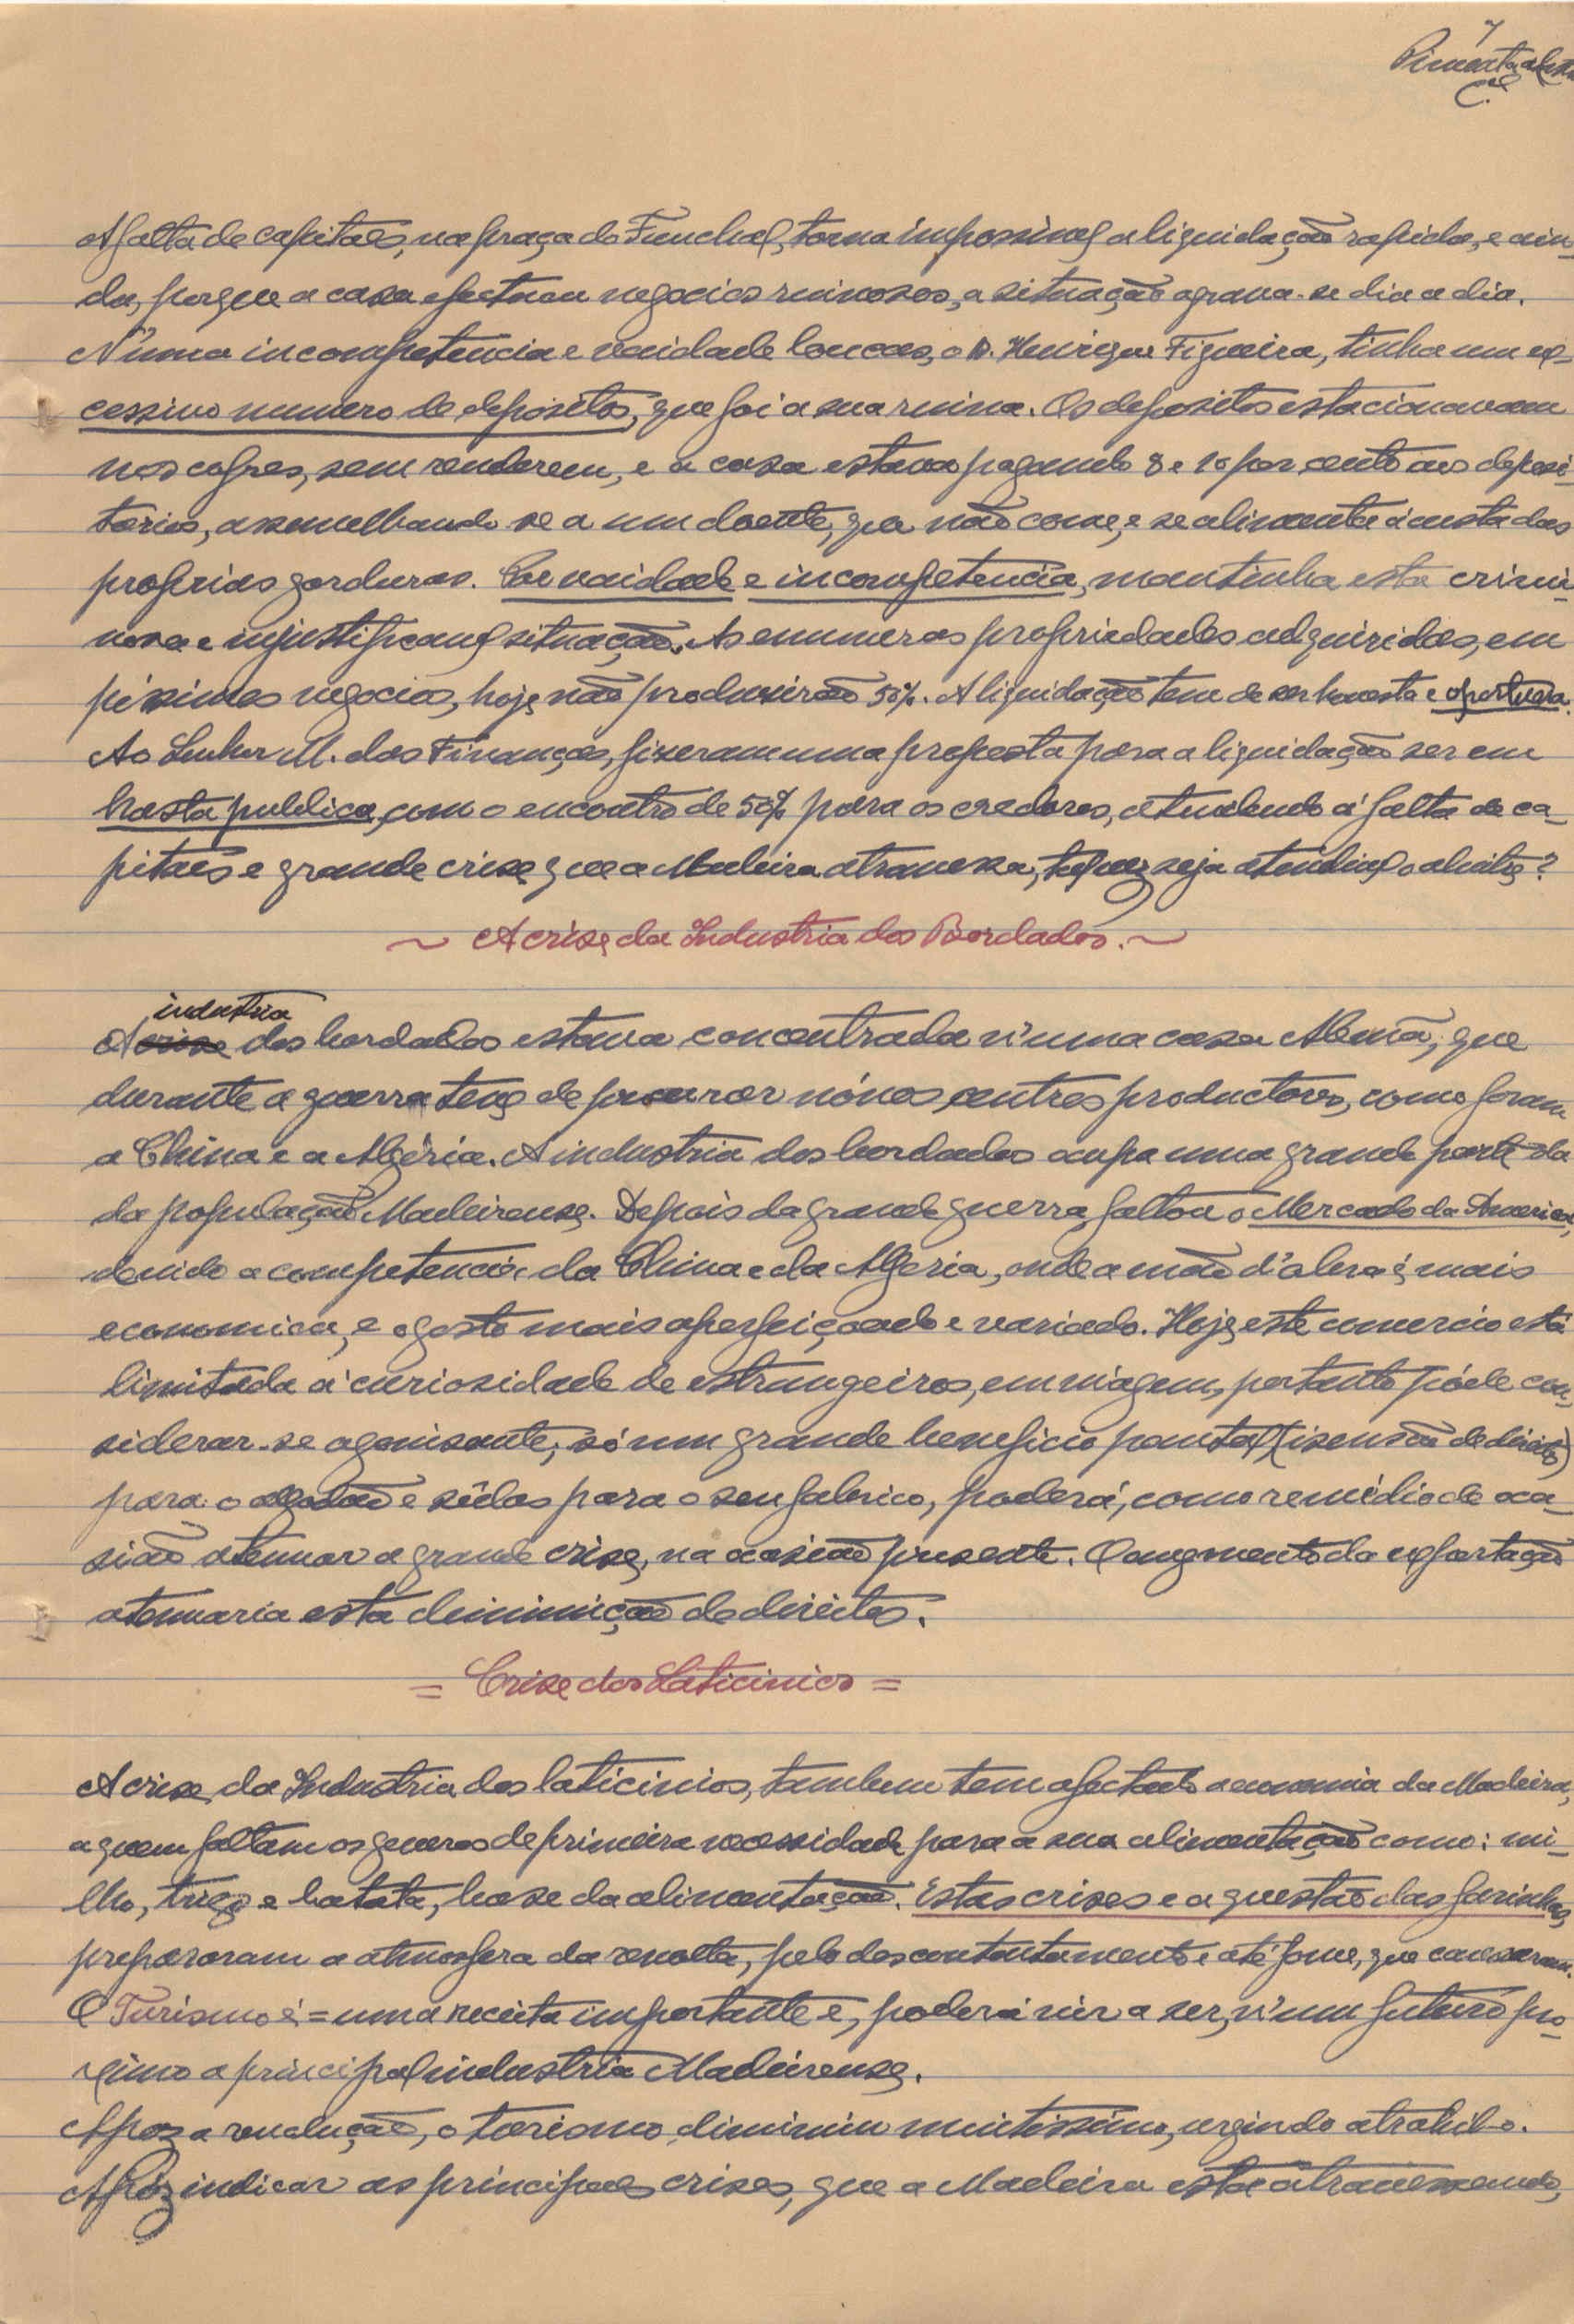 7
Pimenta de Castro
Cel.
A falta de capitaes, na praça do Funchal, torna impossivel a liquidação rapida, e ain-
da, porque a casa efectuou negocios ruinosos, a situação agrava-se dia a dia.
N'uma incompetencia e vaidade loucas, o D. Henrique Figueira, tinha um ex-
cessivo numero de depositos, que foi a sua ruina. Os depositos estacionavam
nos cofres, sem renderem, e a casa estava pagando 8 e 10 por cento aos deposi-
tarios, assemelhando-se a um doente, que não come, e se alimenta á custa das
proprias gorduras. Por vaidade e incompetencia, mantinha esta crimi-
nosa e injustificavel situação. As enumeras propriedades adquiridas, em
péssimos negocios, hoje não produsirão 50%. A liquidação tem de ser honesta e oportuna.
Ao Senhor M. das Finanças, fizeram uma proposta para a liquidação ser em
hasta publica, com o encontro de 50% para os credores, atendendo á falta de ca-
pitaes e grande crise que a Madeira atravessa, talvez seja atendivel o alvitre?
~ A crise da Industria dos Bordados. ~
industria
A crise dos bordados estava concentrada n'uma casa Alemã, que
durante a guerra teve de procurar nóvos centros productores, como foram
a China e a Algéria. A industria dos bordados ocupa uma grande parte da
da população Madeirense. Depois da grande guerra, faltou o Mercado da America,
devido a competencia da China e da Algeria, onde a mão d'obra é mais
economica, e o gosto mais aperfeiçoado e variado. Hoje este comercio está
limitada á curiosidade de estrangeiros, em viagem, portanto póde con-
siderar-se agonisante; só um grande beneficio pautal (isensão de direitos)
para o algodão e sêdas para o seu fabrico, poderá, como remédio de oca-
sião atenuar a grande crise, na ocasião presente. O augmento da exportação
atenuaria esta diminuição de direitos.
= Crise dos Laticinios =
A crise da Industria dos laticinios, tambem tem afectado a economia da Madeira,
a quem faltam os generos de primeira necessidade para a sua alimentação como: mi-
lho, trigo e batata, base da alimentação. Estas crises e a questão das farinhas,
prepararam a atmosfera da revolta, pelo descontentamento e até fome, que causaram.
O Turismo é = uma receita importante e, poderá vir a ser, n'um futuro pro-
ximo a principal industria Madeirense.
Apoz a revolução, o turismo diminuiu muitissimo, urgindo atrahil-o.
Apoz indicar as principaes crises, que a Madeira está atravessando,